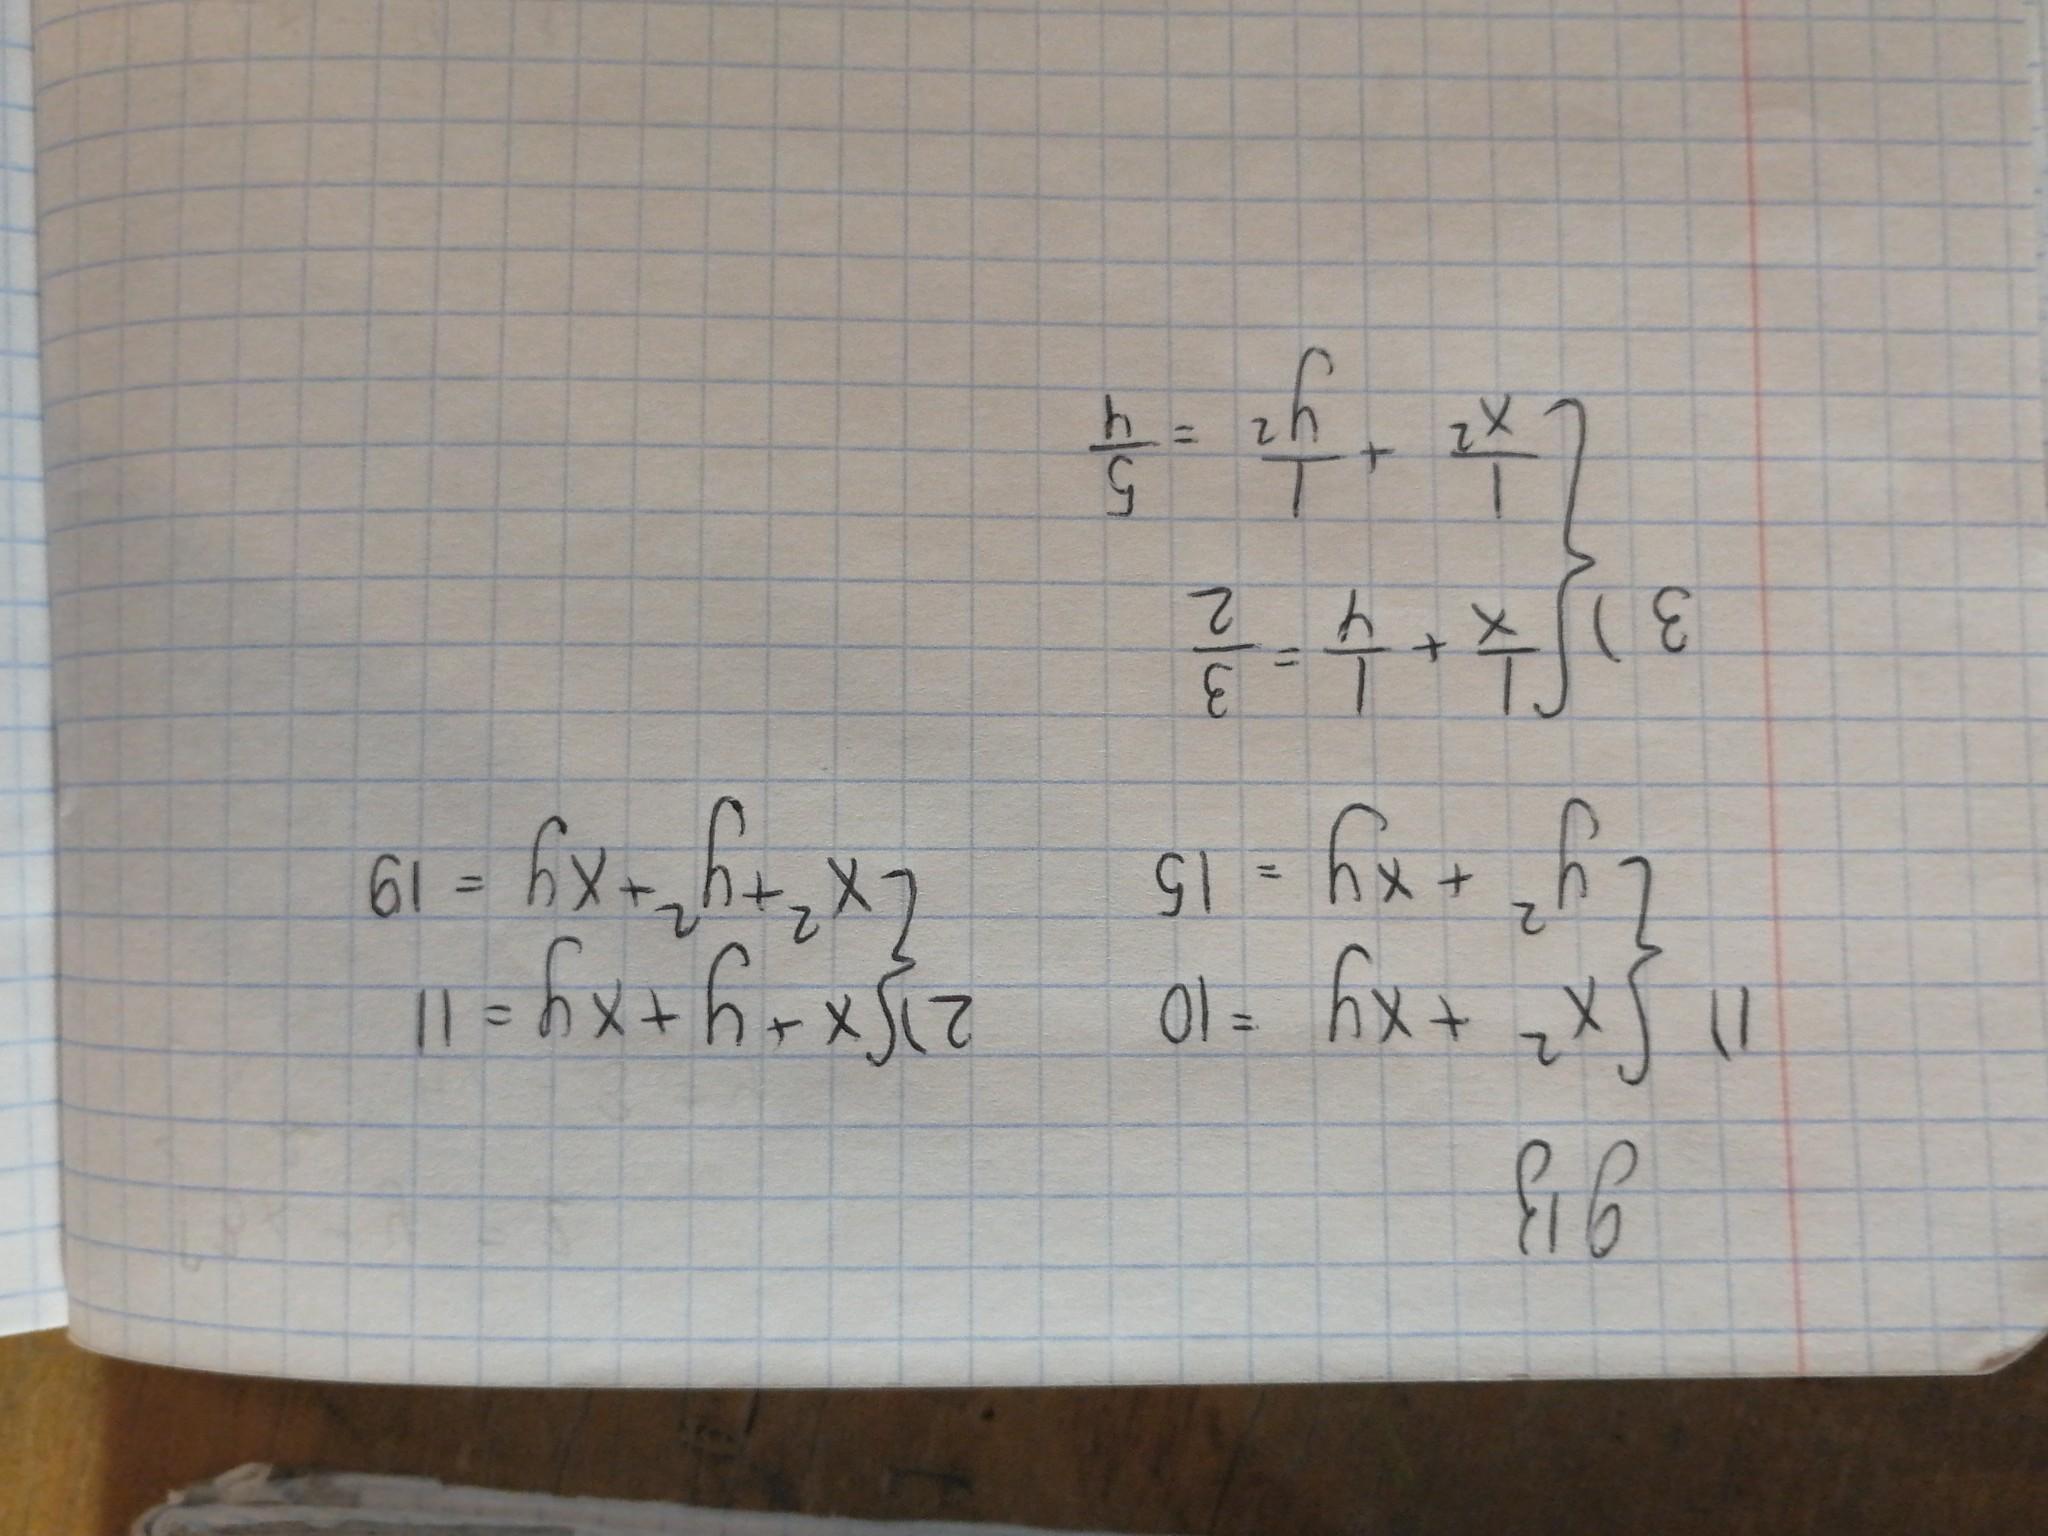 g 13
1) { x² + xy = 10
y² + xy = 15
2) { x + y + xy = 11
x² + y² + xy = 19
3) { 1/x + 1/y = 3/2
1/x² + 1/y² = 5/4